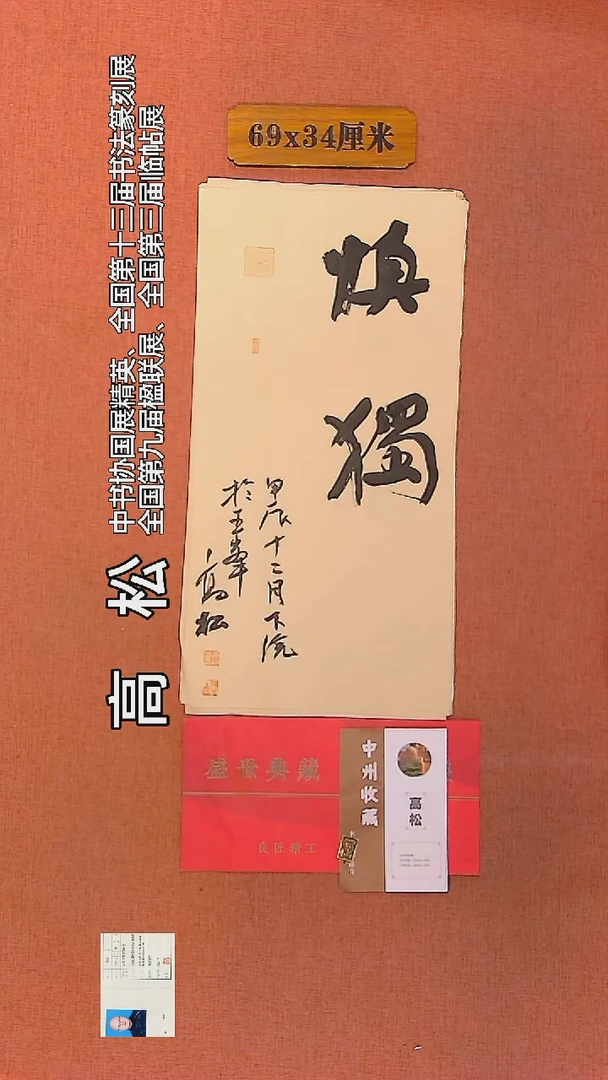 69x34厘米
慎獨
甲辰十二月下浣
於玉峯高松
高松
中书协国展精英、全国第十三届书法篆刻展
全国第九届楹联展、全国第三届临帖展
盛世典藏
良匠精工
中州收藏
高松